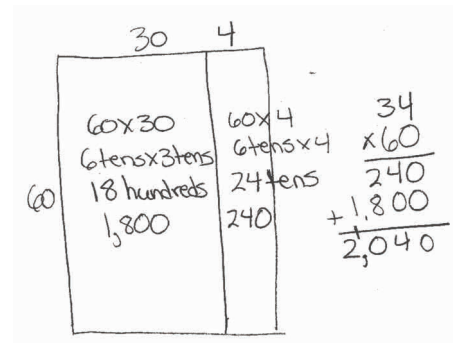 30 4
60x30
6tensx3tens
18 hundreds
1,800
60
60x4
6tensx4
24tens
240
34
x60
240
+1,800
2,040